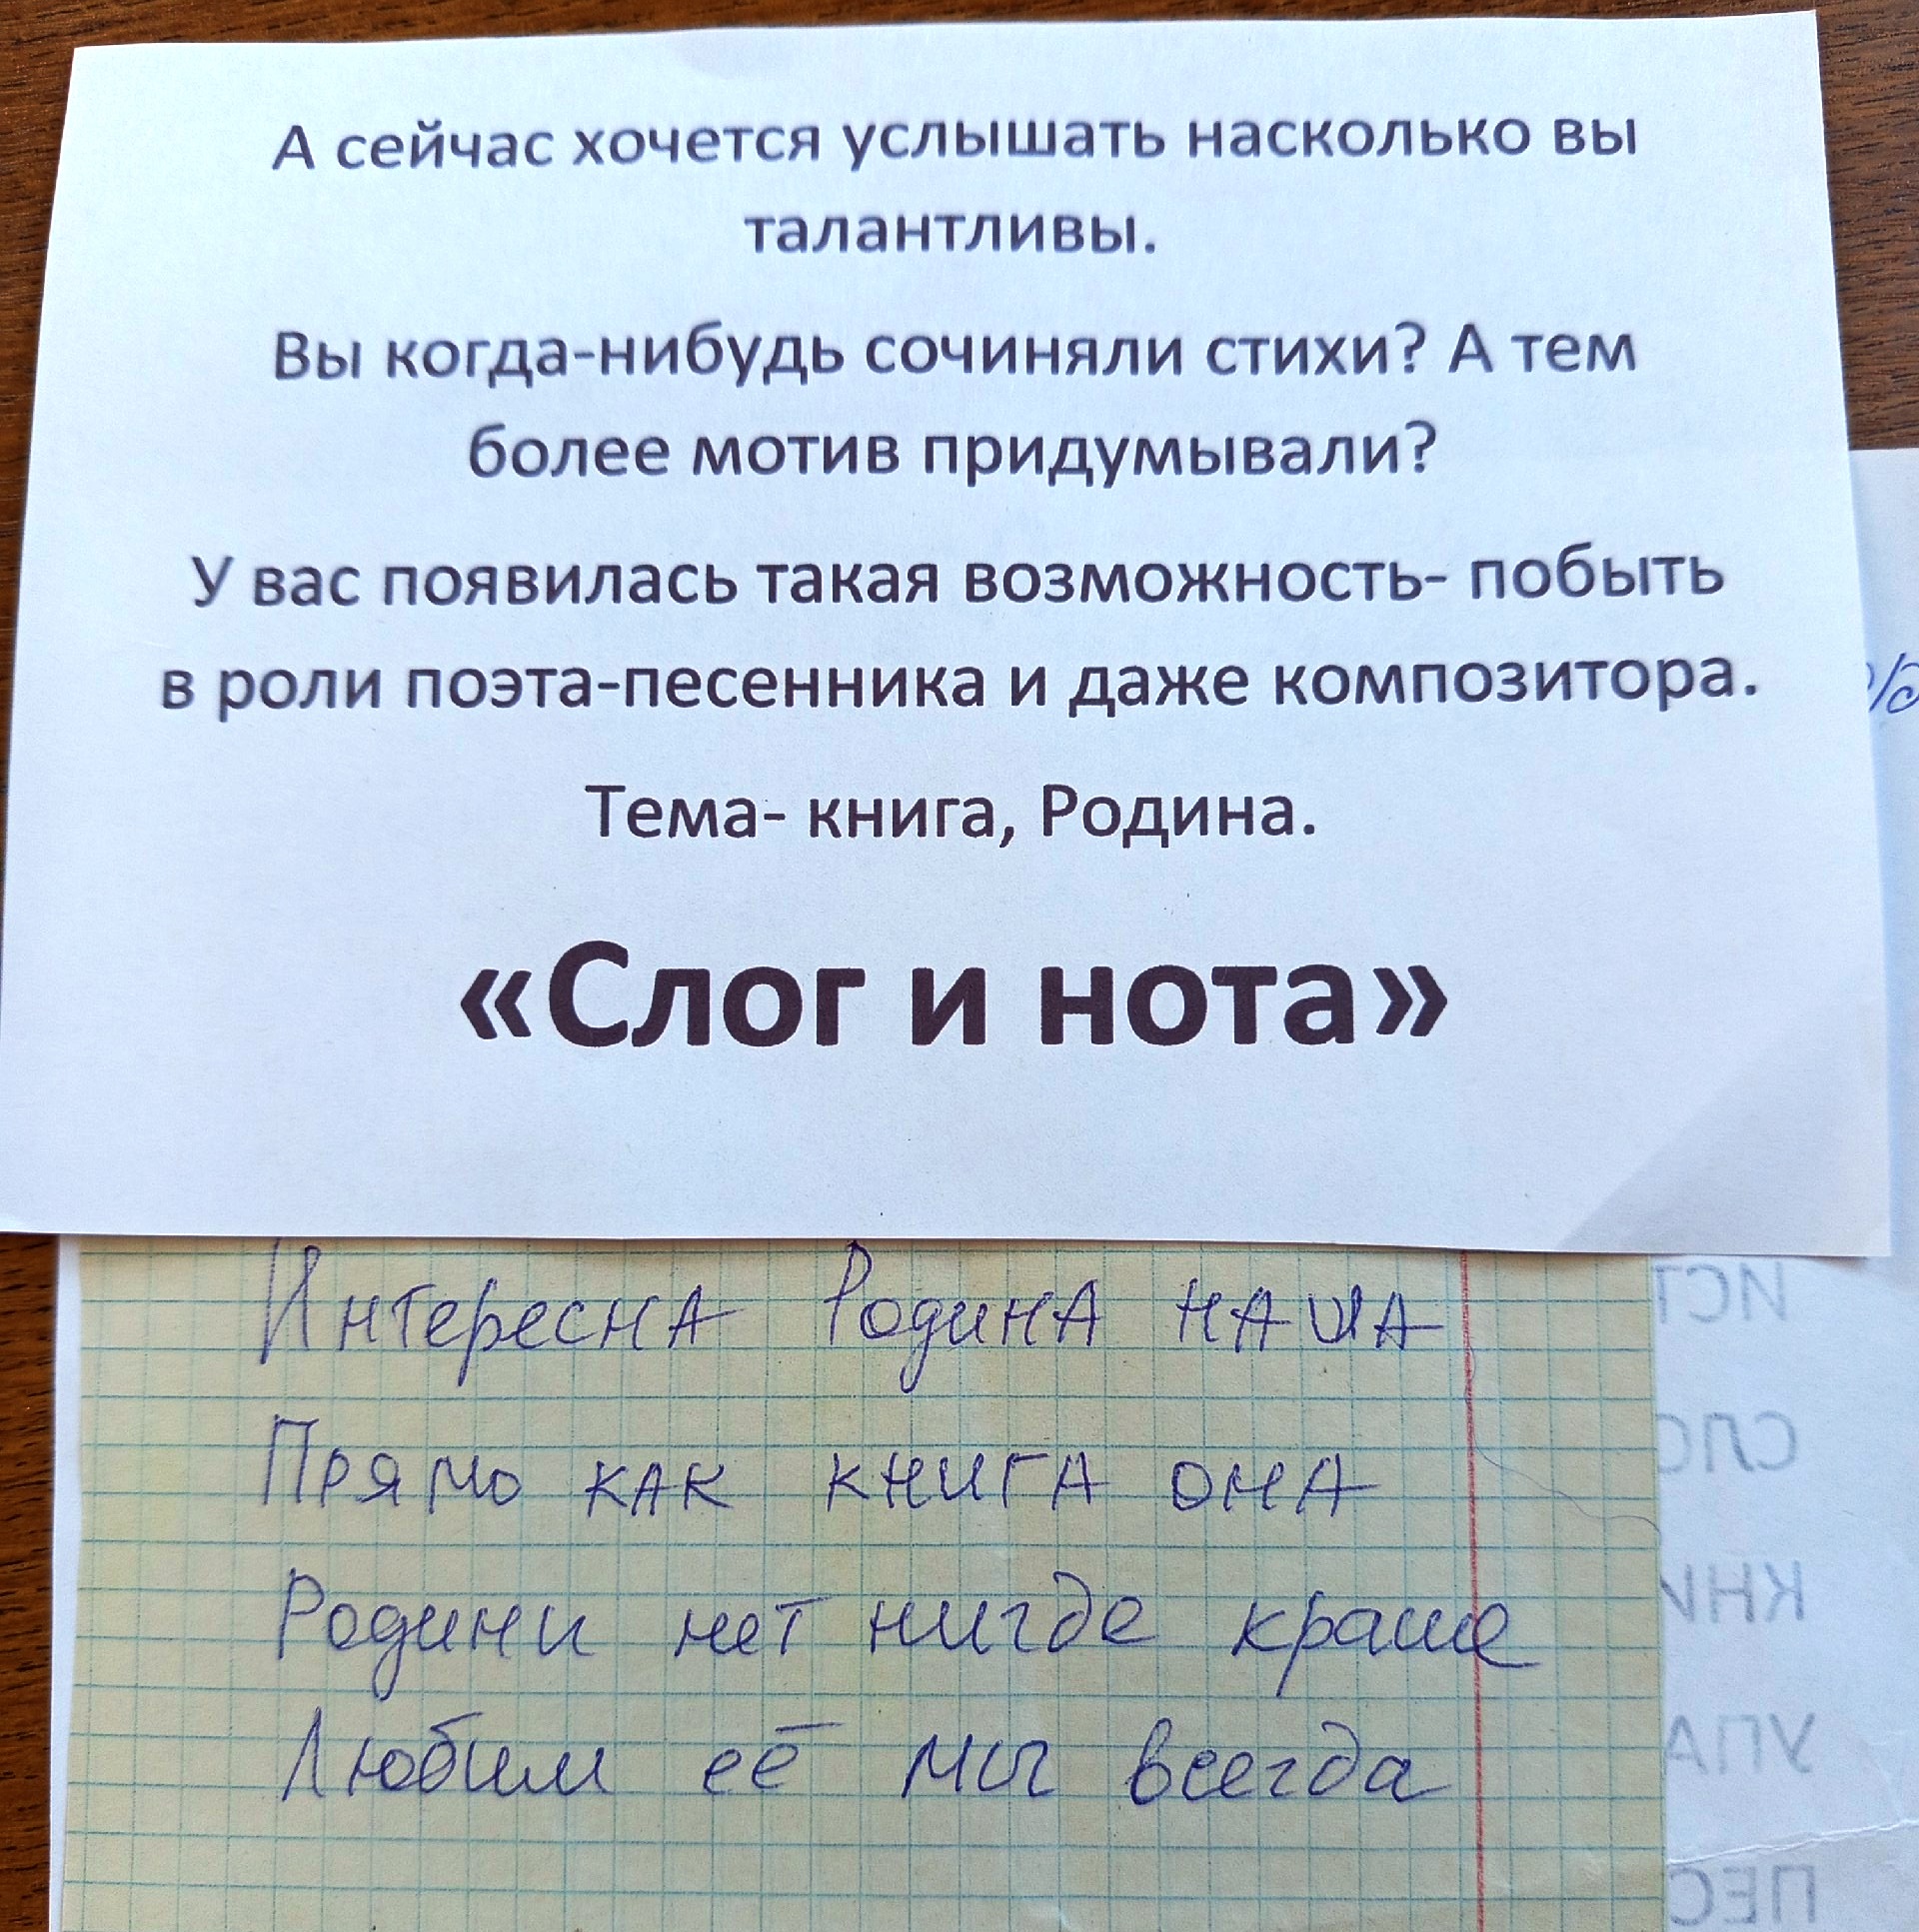 А сейчас хочется услышать насколько вы
талантливы.
Вы когда-нибудь сочиняли стихи? А тем
более мотив придумывали?
У вас появилась такая возможность- побыть
в роли поэта-песенника и даже композитора.
Тема- книга, Родина.
«Слог и нота»
Интересна Родина наша
Прямо как книга она
Родини нет нигде краше
Любим её мы всегда
ИСТ
СЛО
КНИ
УПА
ПЕС